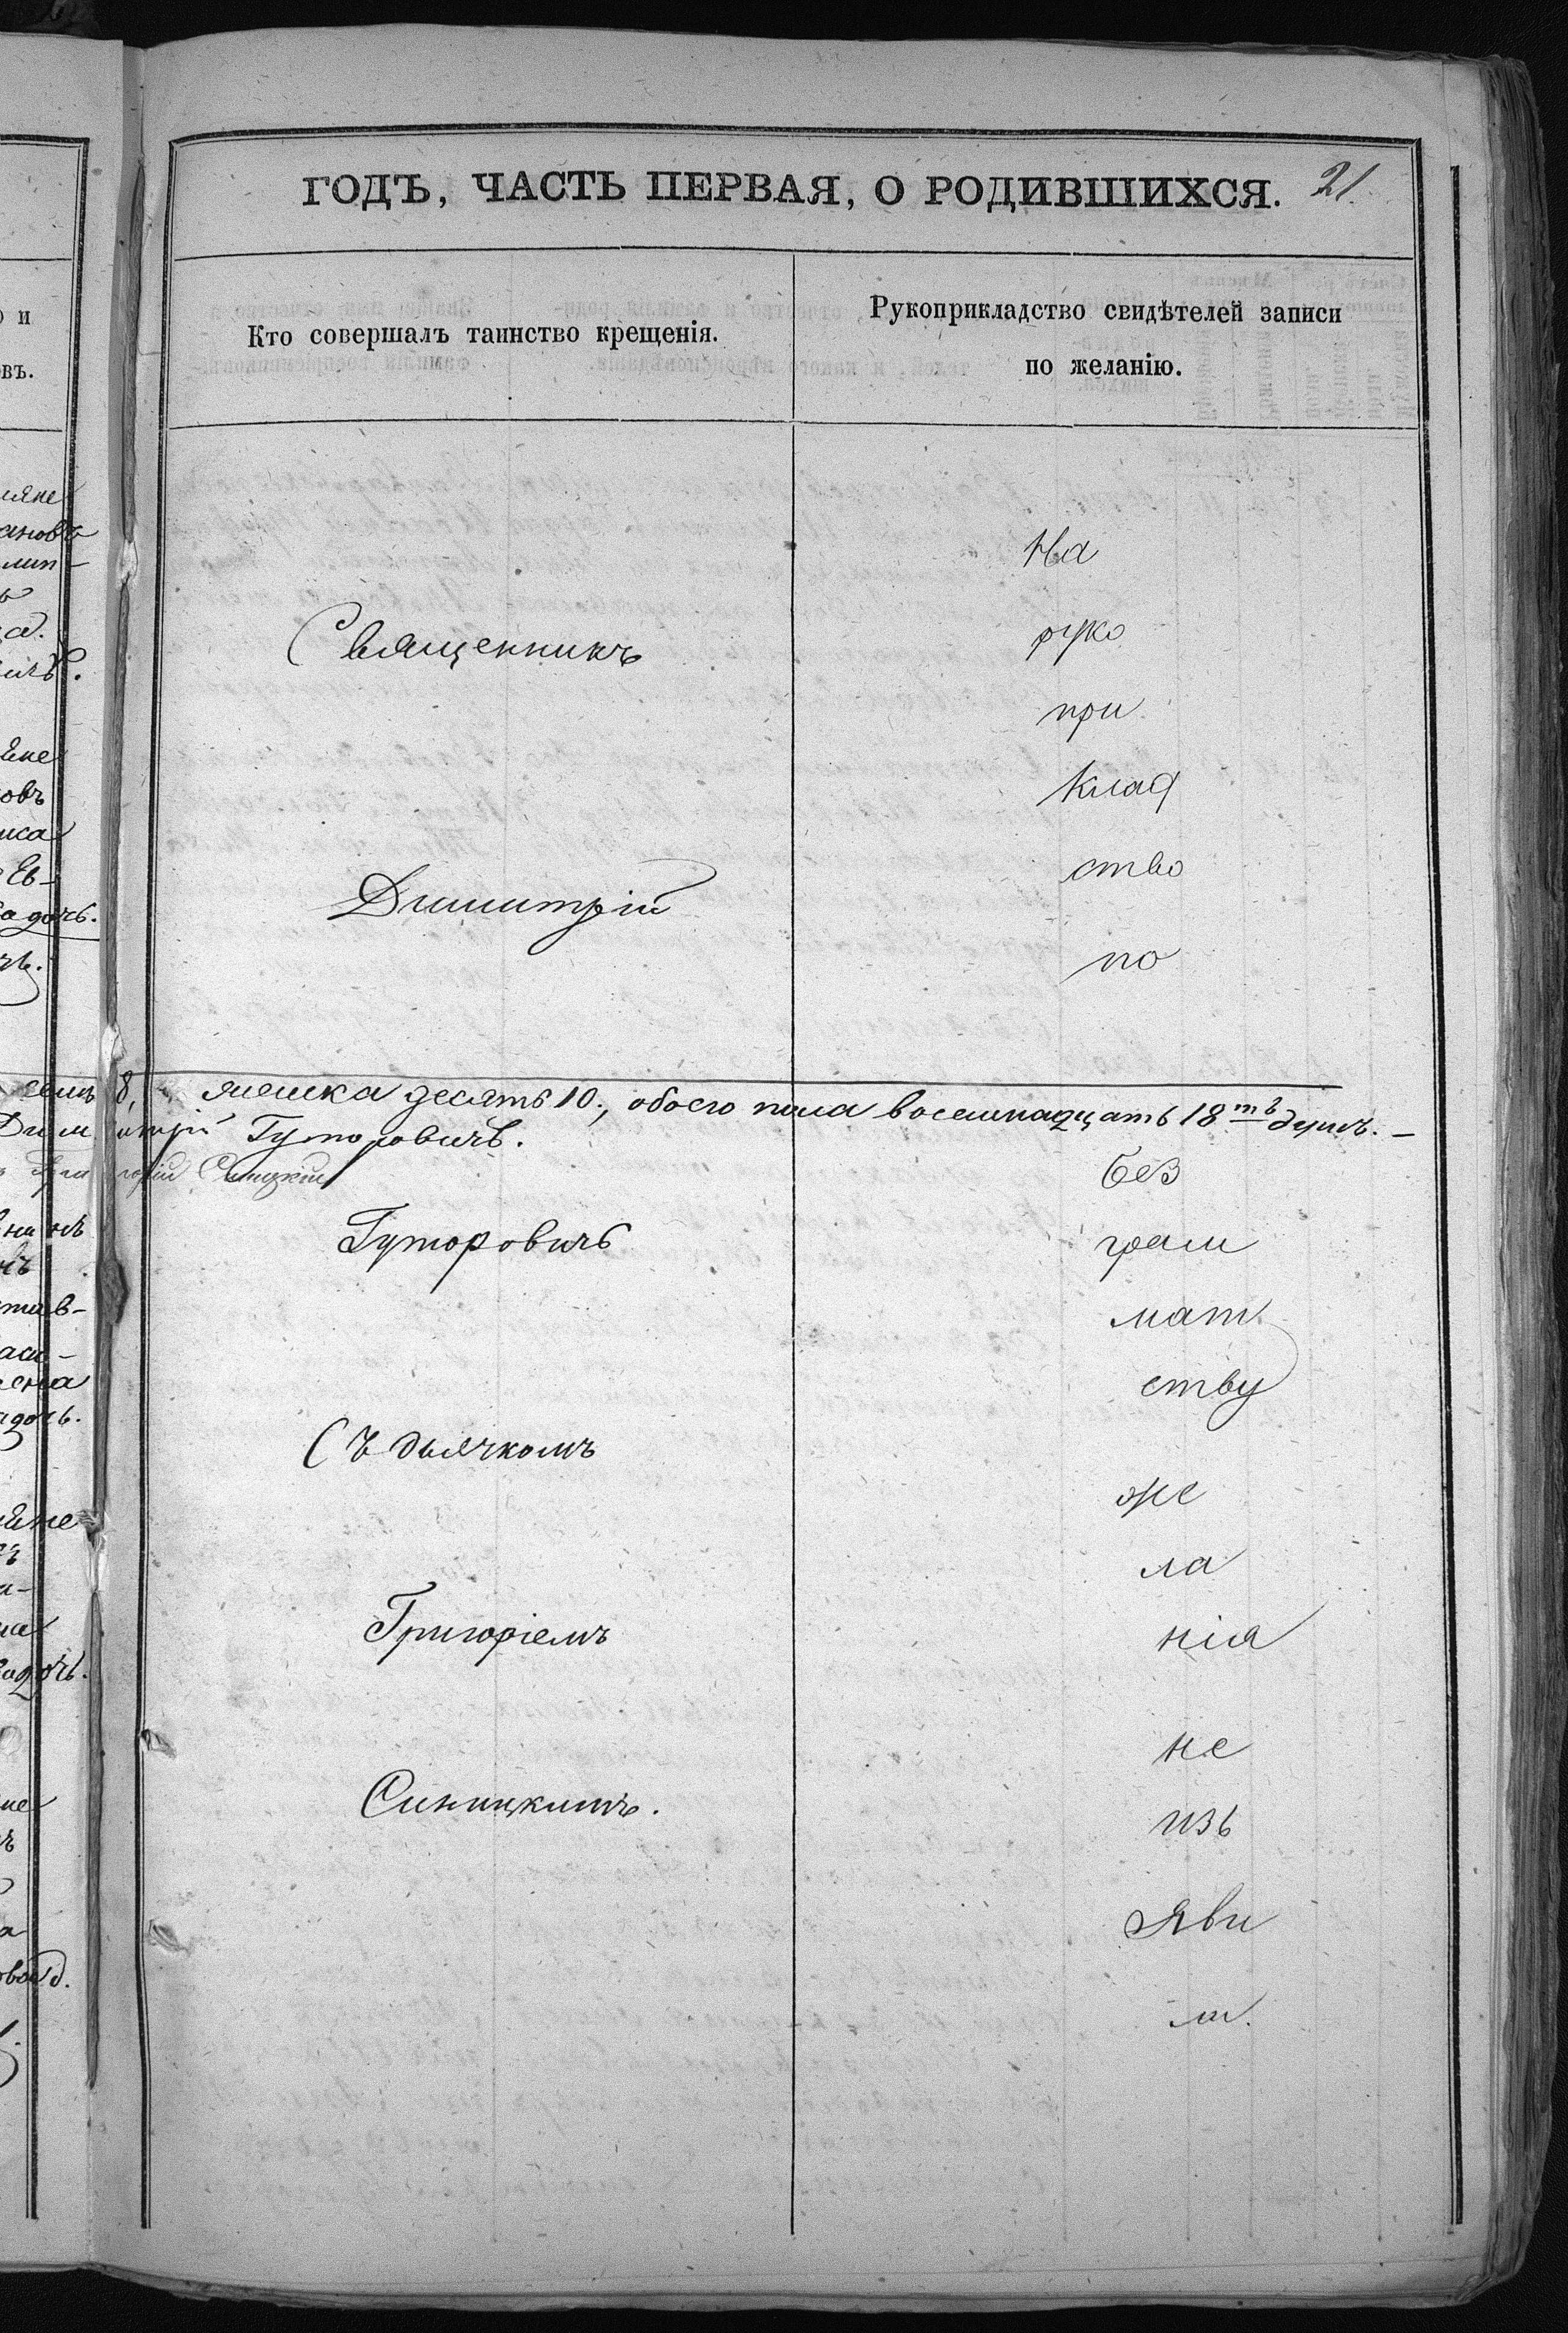 ГОДЪ, ЧАСТЬ ПЕРВАЯ, О РОДИВШИХСЯ. 21.
Кто совершалъ таинство крещенія.
Рукоприкладство свидѣтелей записи
по желанію.
Священникъ
Димитрій
На
руко
при
клад
ство
по
8, женска десять 10, обоего пола восемнадцать 18тъ душъ. —
Димитрій Гуторовичъ.
Григорій Синицкій
Гуторовичъ
Съ дьячкомъ
Григоріемъ
Синицкимъ.
без
грам
мат
ству
же
ла
нія
не
изь
яви
ли.